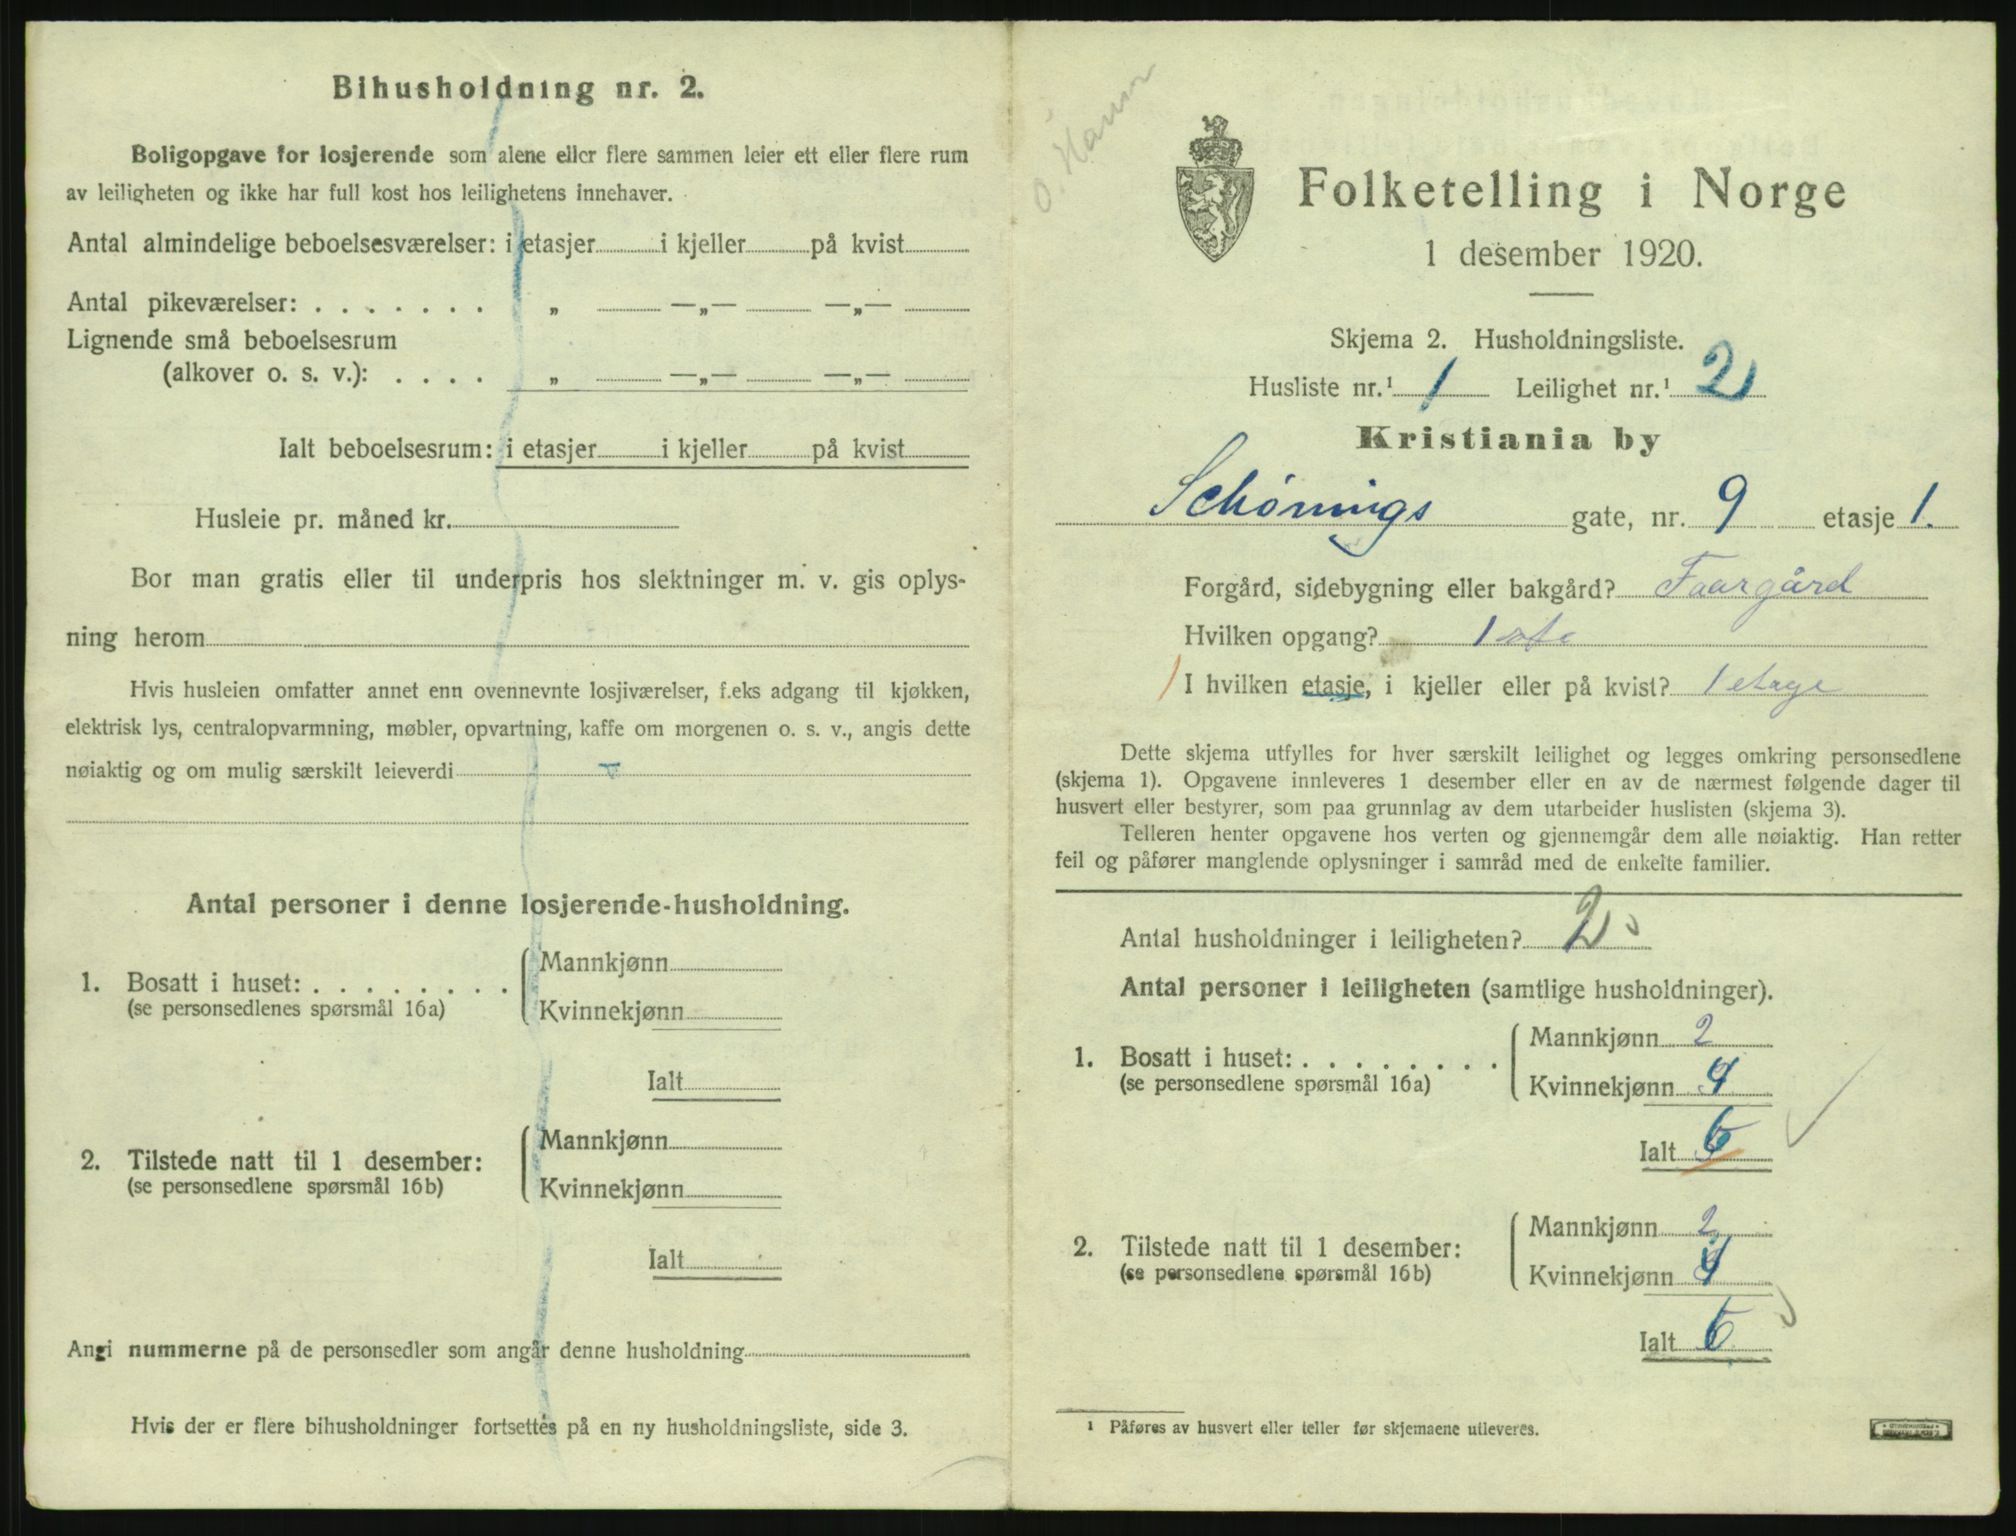 Bihusholdning nr. 2.
Boligopgave for losjerende som alene eller flere sammen leier ett eller flere rum
av leiligheten og ikke har full kost hos leilighetens innehaver.
Antal almindelige beboelsesværelser: i etasjer i kjeller på kvist
Antal pikeværelser: . . . . . . . „ —„— —„—
Lignende små beboelsesrum
(alkover o. s. v.): . . . . „ —„— —„—
Ialt beboelsesrum: i etasjer i kjeller på kvist
Husleie pr. måned kr.
Bor man gratis eller til underpris hos slektninger m. v. gis oplys-
ning herom
Hvis husleien omfatter annet enn ovennevnte losjiværelser, f.eks adgang til kjøkken,
elektrisk lys, centralopvarmning, møbler, opvartning, kaffe om morgenen o. s. v., angis dette
nøiaktig og om mulig særskilt leieverdi
Antal personer i denne losjerende-husholdning.
1. Bosatt i huset: . . . . . . . . Mannkjønn
(se personsedlenes spørsmål 16a) Kvinnekjønn
Ialt
2. Tilstede natt til 1 desember: Mannkjønn
(se personsedlene spørsmål 16b) Kvinnekjønn
Ialt
Angi nummerne på de personsedler som angår denne husholdning
Hvis der er flere bihusholdninger fortsettes på en ny husholdningsliste, side 3.
Folketelling i Norge
1 desember 1920.
Skjema 2. Husholdningsliste.
Husliste nr.¹ 1 Leilighet nr.¹ 2
Kristiania by
Schønings gate, nr. 9 etasje 1.
Forgård, sidebygning eller bakgård? Faargård
Hvilken opgang? 1ste
1 I hvilken etasje, i kjeller eller på kvist? 1 etage
Dette skjema utfylles for hver særskilt leilighet og legges omkring personsedlene
(skjema 1). Opgavene innleveres 1 desember eller en av de nærmest følgende dager til
husvert eller bestyrer, som paa grunnlag av dem utarbeider huslisten (skjema 3).
Telleren henter opgavene hos verten og gjennemgår dem alle nøiaktig. Han retter
feil og påfører manglende oplysninger i samråd med de enkelte familier.
Antal husholdninger i leiligheten? 2
Antal personer i leiligheten (samtlige husholdninger).
1. Bosatt i huset: . . . . . . . . Mannkjønn 2
(se personsedlene spørsmål 16a) Kvinnekjønn 4
Ialt 6
2. Tilstede natt til 1 desember: Mannkjønn 2
(se personsedlene spørsmål 16b) Kvinnekjønn 4
Ialt 6
¹ Påføres av husvert eller teller før skjemaene utleveres.